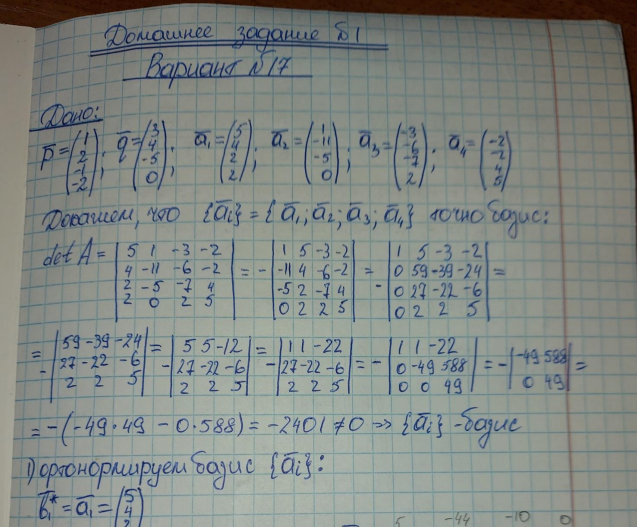 Домашнее задание №1
Вариант №17
Дано:
p̅ = (1 2 -1 -2); q̅ = (3 4 -5 0); a̅₁ = (5 4 2 2); a̅₂ = (1 -11 -5 0); a̅₃ = (-3 -6 -7 2); a̅₄ = (-2 -2 4 5)
Докажем, что {a̅i} = {a̅₁; a̅₂; a̅₃; a̅₄} точно базис:
det A = |5 1 -3 -2; 4 -11 -6 -2; 2 -5 -7 4; 2 0 2 5| = -|1 5 -3 -2; -11 4 -6 -2; -5 2 -7 4; 0 2 2 5| = -|1 5 -3 -2; 0 59 -39 -24; 0 27 -22 -6; 0 2 2 5| =
= -|59 -39 -24; 27 -22 -6; 2 2 5| = -|5 5 -12; 27 -22 -6; 2 2 5| = -|1 1 -22; 27 -22 -6; 2 2 5| = -|1 1 -22; 0 -49 588; 0 0 49| = -|-49 588; 0 49| =
= -(-49·49 - 0·588) = -2401 ≠ 0 => {a̅i} - базис
1) ортонормируем базис {a̅i}:
b̅₁* = a̅₁ = (5 4 2
5 -44 -10 0